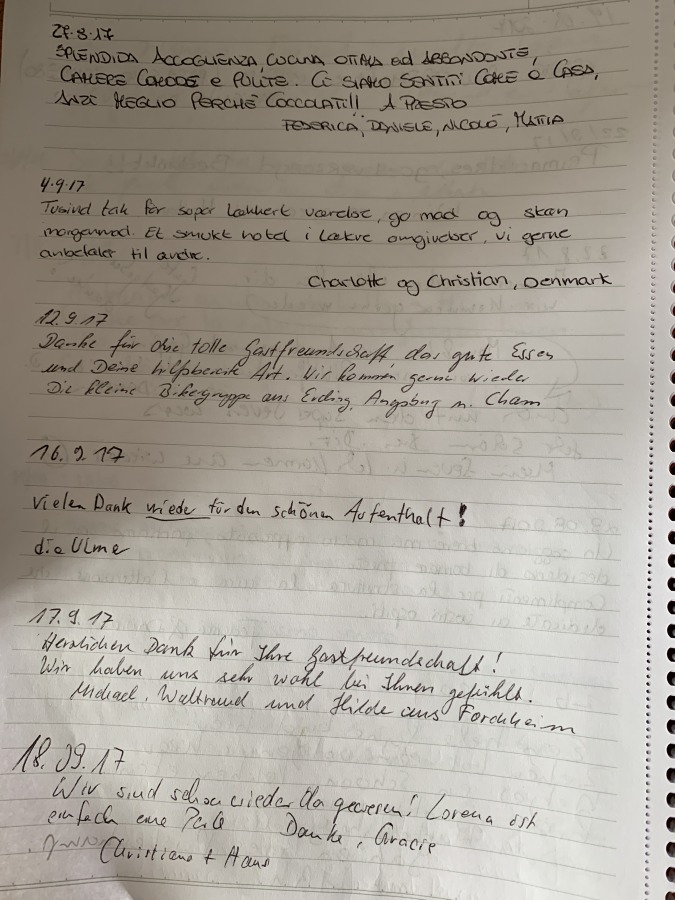 27.8.17
SPLENDIDA ACCOGLIENZA, CUCINA OTTIMA ed ABBONDONTE,
CAMERE COMODE e PULITE. CI SIAMO SENTITI COME A CASA,
ANZI MEGLIO PERCHÉ COCCOLATI!! A PRESTO
FEDERICA, DANIELE, NICOLÒ, MATTIA
4.9.17
Tusind tak for super lækkert værelse, go mad og skøn
morgenmad. Et smukt hotel i lækre omgivelser, vi gerne
anbefaler til andre.
Charlotte og Christian, Denmark
12.9.17
Danke für die tolle Gastfreundschaft das gute Essen
und Deine hilfsbereite Art. Wir kommen gerne wieder
Die kleine Bikergruppe aus Erding, Augsburg u. Cham
16.9.17
Vielen Dank wieder für den schönen Aufenthalt!
die Ulmer
17.9.17
Herzlichen Dank für Ihre Gastfreundschaft!
Wir haben uns sehr wohl bei Ihnen gefühlt.
Michael, Waltraud und Hilde aus Forchheim
18.09.17
Wir sind schon wieder da gewesen! Lorena ist
einfach eine Perle Danke, Gracie
Christiane + Hans